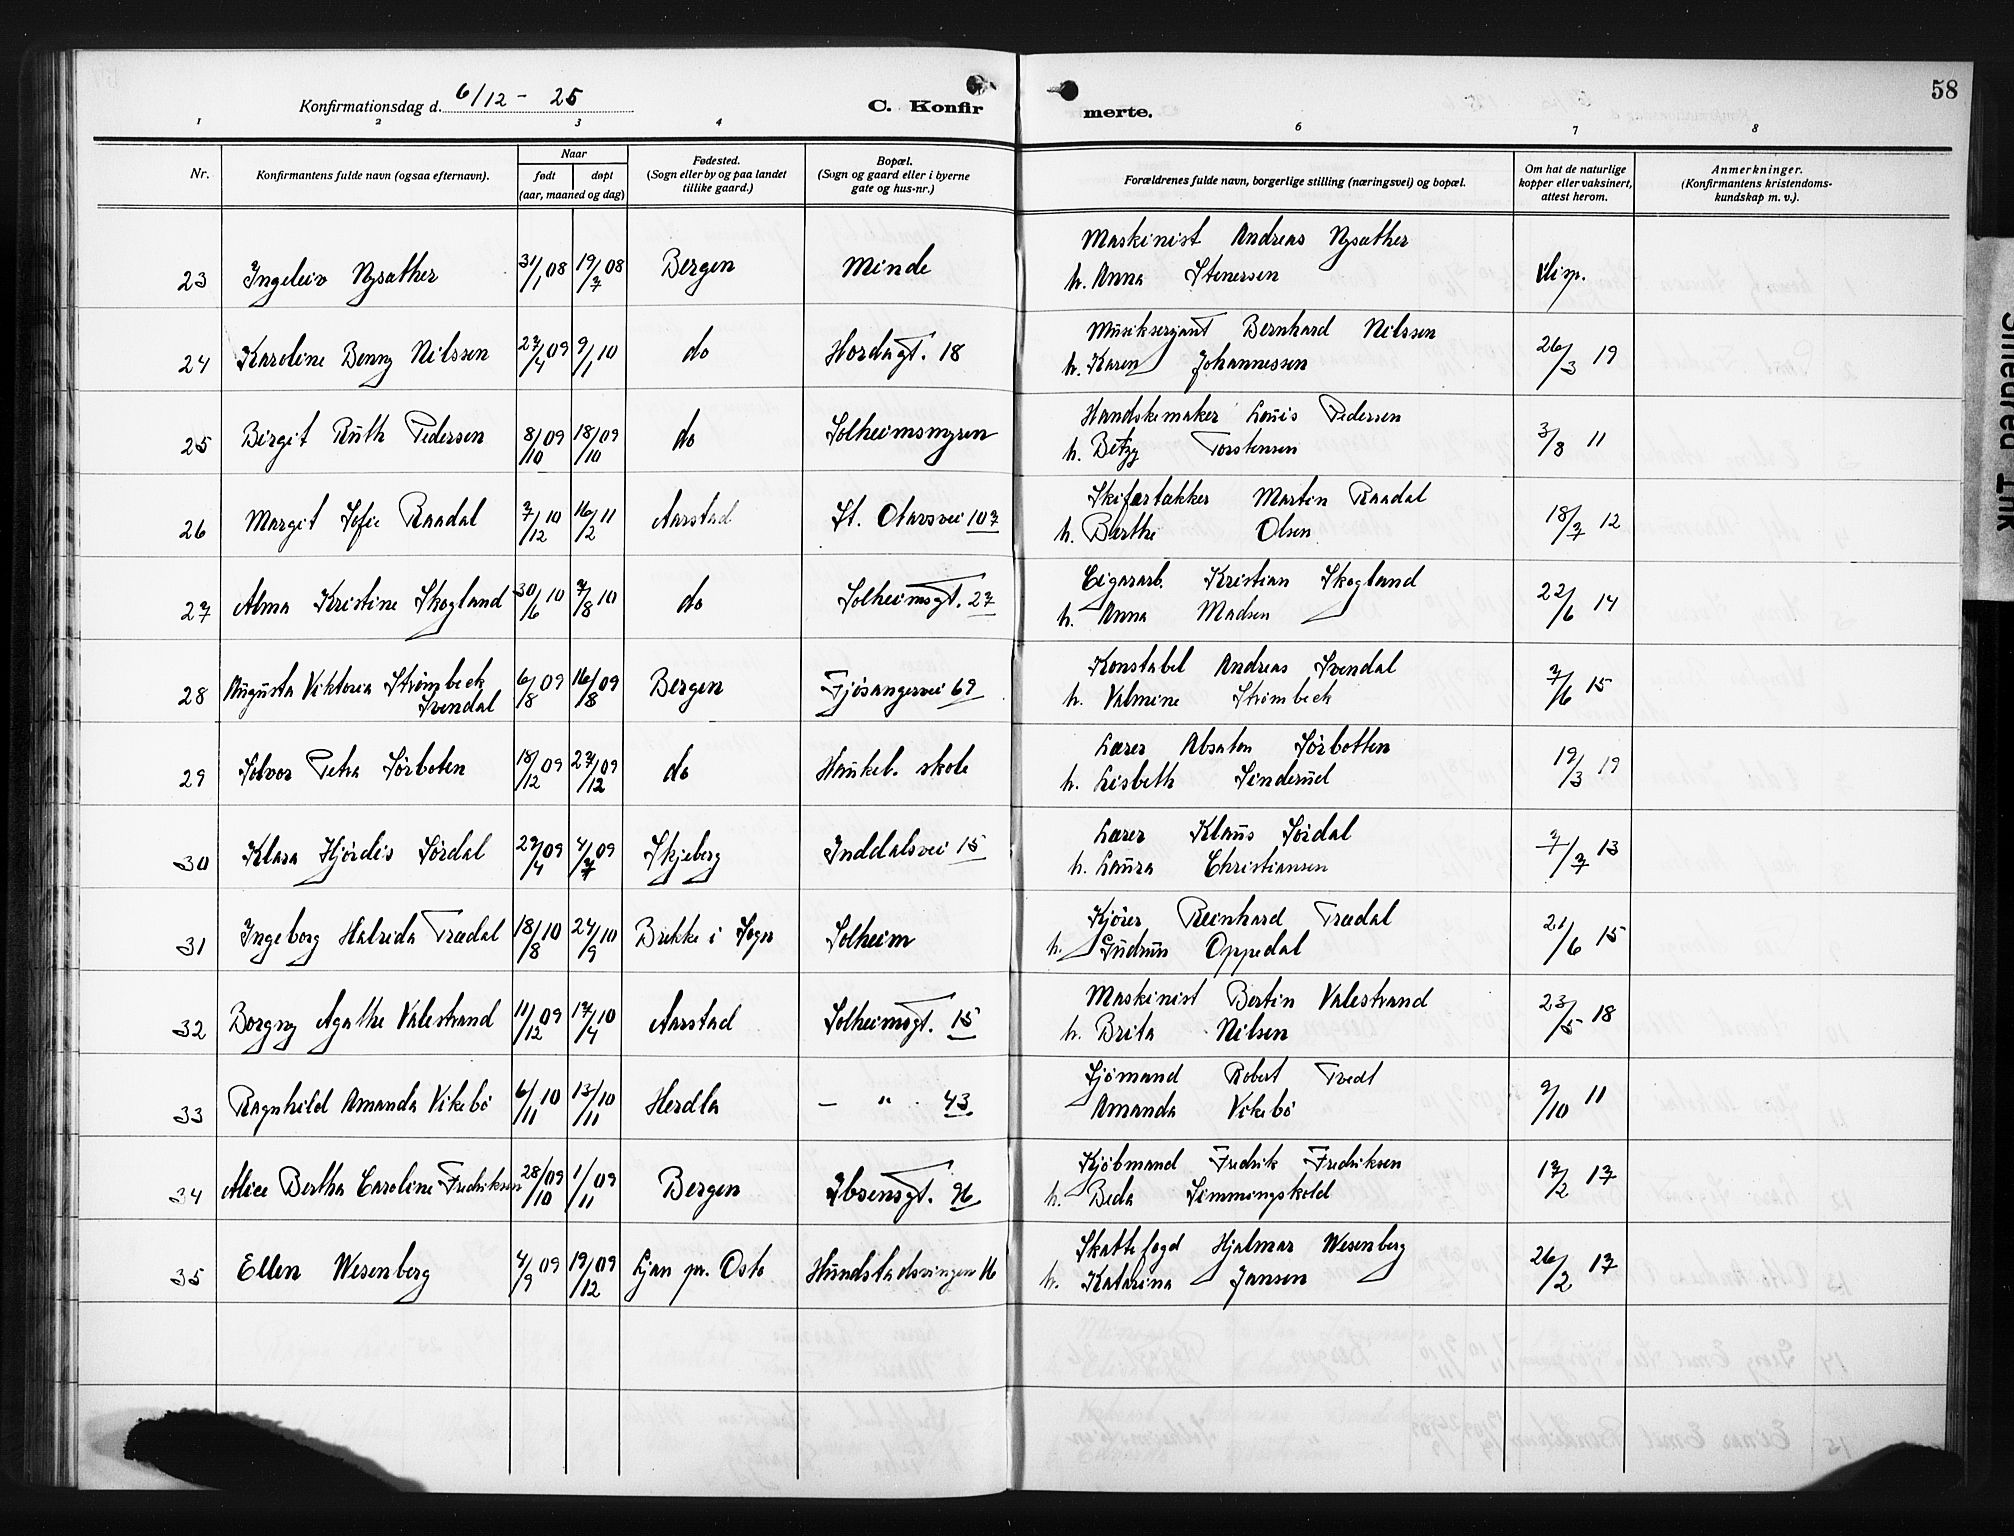 58
Konfirmationsdag d. 6/12 - 25
C. Konfir merte.
1 2 3 4 6 7 8
Nr.
Konfirmantens fulde navn (ogsaa efternavn).
Naar
født døpt
(aar, maaned og dag)
Fødested.
(Sogn eller by og paa landet
tillike gaard.)
Bopæl.
(Sogn og gaard eller i byerne
gate og hus-nr.)
Forældrenes fulde navn, borgerlige stilling (næringsvei) og bopæl.
Om hat de naturlige
kopper eller vaksinert,
attest herom.
Anmerkninger.
(Konfirmantens kristendoms-
kundskap m. v.).
Maskinist Andreas Nysæther
23 Ingeleiv Nysæther 31/1 08 19/7 08 Bergen Minde h. Anna Stenersen
Musiksersjant Bernhard Nilssen
24 Karoline Benny Nilssen 27/4 09 9/1 10 do Hordagt. 18 h. Karen Johannessen 26/3 19
Handskemaker Louis Pedersen
25 Birgit Ruth Pedersen 8/10 09 18/10 09 do Solheimsmyren h. Betzy Torstensen 3/8 11
Skifertækker Martin Raadal
26 Margit Sofie Raadal 7/12 10 16/2 11 Aarstad St. Olavsvei 107 h. Barthe Olsen 18/7 12
Cigararb. Kristian Skogland
27 Alma Kristine Skogland 30/6 10 7/8 10 do Solheimsgt. 27 h. Anna Madsen 22/6 14
Konstabel Andreas Svendal
28 Augusta Viktoria Strømbeck 6/8 09 16/8 09 Bergen Fjøsangervei 69 h. Valmine Strømbeck 7/6 15
Svendal
Lærer Absalon Sørbotten
29 Solvor Petra Sørboten 18/12 09 27/12 09 do Haukel. skole h. Lisbeth Sinderud 19/3 19
Lærer Klaus Sørdal
30 Klara Hjørdis Sørdal 27/4 09 4/7 09 Skjeberg Inddalsvei 15 h. Laura Christiansen 7/7 13
Kjører Reinhard Trædal
31 Ingeborg Halrida Trædal 18/8 10 24/9 10 Brekke i Sogn Solheim h. Gudrun Oppedal 21/6 15
Maskinist Bertin Valestrand
32 Borgny Agathe Valestrand 11/12 09 17/4 10 Aarstad Solheimsgt. 15 h. Brita Nilsen 23/5 18
Sjømand Robert Tvedt
33 Ragnhild Amanda Vikebø 6/11 10 13/11 10 Herdla — " 43 Amanda Vikebø 9/10 11
Kjøbmand Fredrik Fredriksen
34 Alice Bertha Caroline Fredriksen 28/10 09 1/11 09 Bergen Ibsensgt. 96 h. Beda Simmingskold 17/2 17
Skattefogd Hjalmar Wesenberg
35 Ellen Wesenberg 4/9 09 19/12 09 Ljan pr. Oslo Hundstadsvingen 16 h. Katarina Jansen 26/2 17